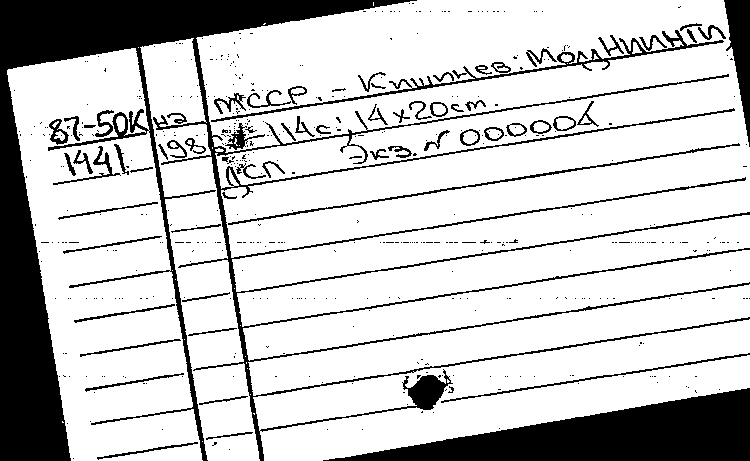 87-50К нэ МССР. - Кишинев: МолдНИИНТИ,
1441 1986. - 114с.; 14х20cm.
ДСП. Экз. № 000004.